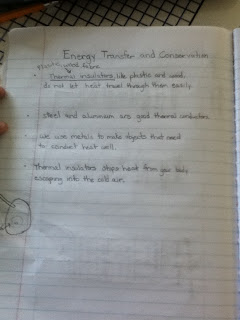 Energy Transfer and Conservation
plastic, wood
Thermal insulators, like plastic and wood,
do not let heat travel through them easily.
Steel and aluminum are good thermal conductors.
we use metals to make objects that need
to conduct heat well.
Thermal insulators stops heat from your body
escaping into the cold air.